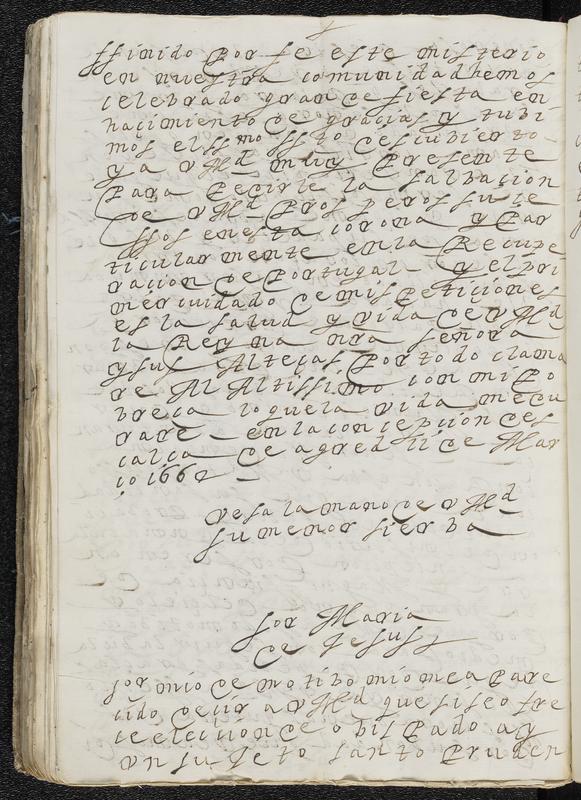 ffinido por fe este misterio
en nuestra comunidad hemos
celebrado grande fiesta en
hacimiento de gracias y tubi
mos el ssmo ssto descubierto
y a v Md muy presente
para decirle la salbacion
de v Md prosperos suce
ssos en esta corona y par
ticularmente en la recupe
racion de Portugal y el pri
mer cuidado de mis peticiones
es la salud y vida de v Md
la Reyna nra señora
y sus Alteças por todo clama
re Al Altissimo con mi po
breça lo que la vida me cu
rare en la concepcion des
calça de agred 11 de Mar
ço 1662
vesa la mano de v Md
su menor sierba
sor Maria
de Jesus
sor mio de motibo mio me a pare
cido decir a v Md que si se ofre
ce eleccion de obispado ay
un sujeto santo pruden